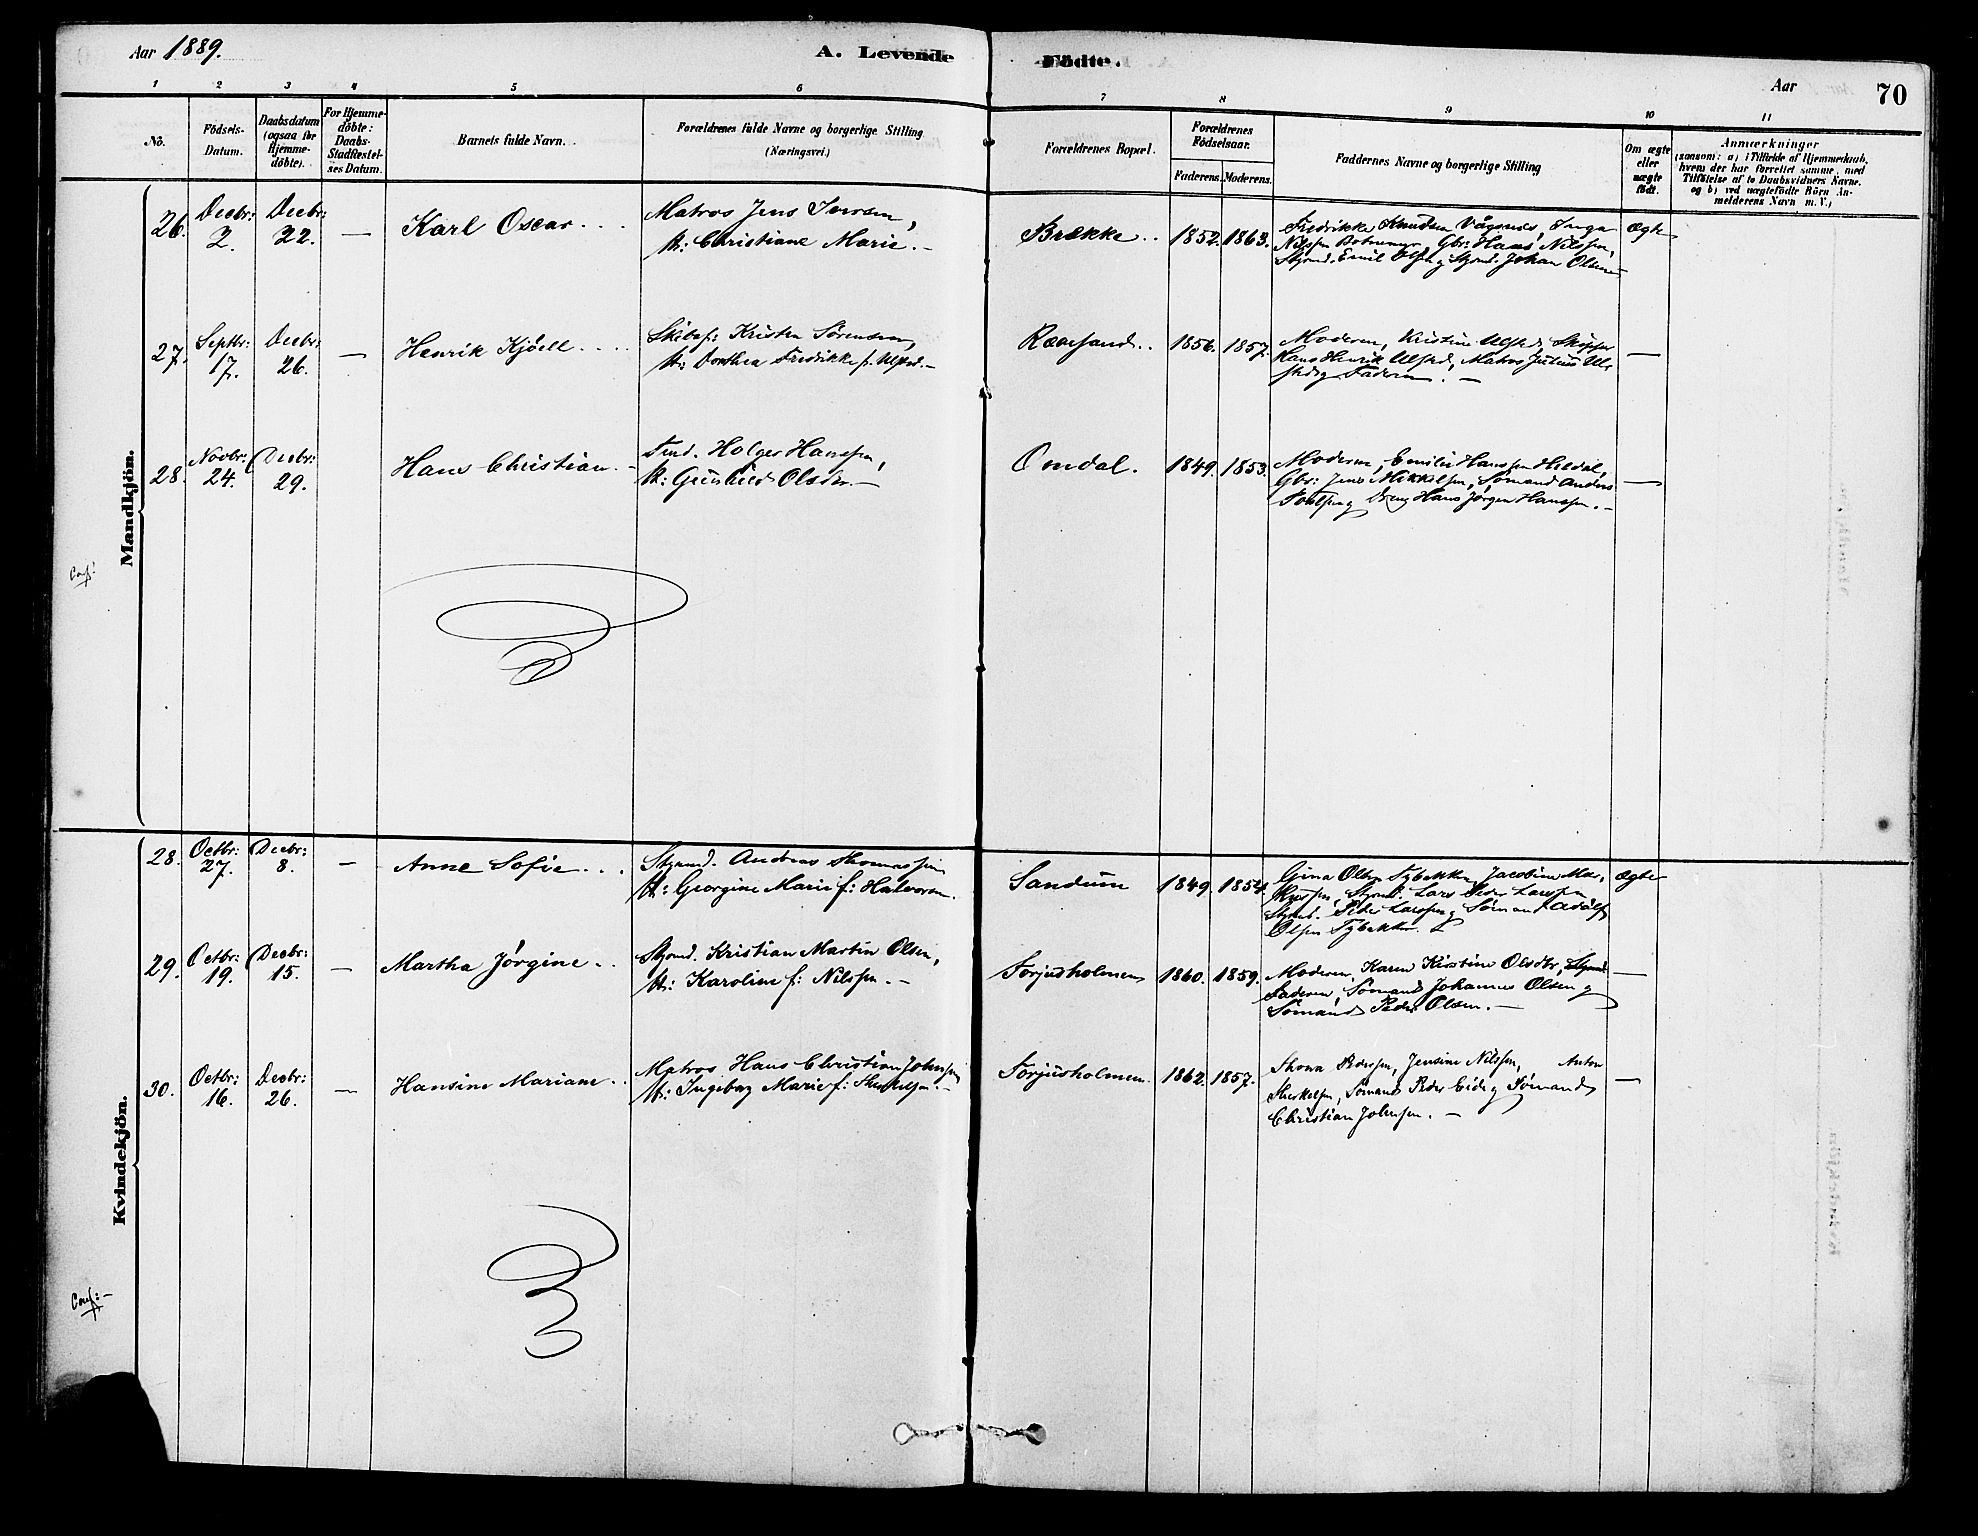 Aar 1889.
A. Levende
Födte.
Aar
70
1 2 3 4 5 6
7 8 9 10 11
No.
Födsels-
Datum.
Daabsdatum
(ogsaa for
Hjemme-
döbte).
For Hjemme-
döbte:
Daabs-
Stadfæstel-
ses Datum.
Barnets fulde Navn.
Forældrenes fulde Navne og borgerlige Stilling
(Næringsvei.)
Forældrenes Bopæl.
Forældrenes
Födselsaar.
Faderens. Moderens.
Faddernes Navne og borgerlige Stilling
Om ægte
eller
uægte
födt.
Anmærkninger
(saasom: a) i Tilfælde af Hjemmedaab,
hvem der har forrettet samme, med
Tilföielse af to Daabsvidners Navne.
og b) ved uægtefödte Börn An-
melderens Navn m. V.)
Mandkjön.
26. Decbr: 2. Decbr: 22. — Karl Oscar
Matros Jens
H: Christiane Marie. —
Brække 1852. 1863.
Fredrikke Knudsen Vågsnes, Inga
Nilssen Gbr: Hans Nilssen,
Styrmd. Emil Olsen g Styrmd. Johan Olsen
Ægte
27. Septbr: 17. Decbr: 26. — Henrik Kjöell
Skibsf: Kristen Sörensen,
H: Dorthea Fredrikke f. Ulsted. —
Ræresand 1856. 1857.
Moderen, Kristine Ulsted, Skipper
Hans Henrik Ulsted, Matros Julius Ul-
sted g Faderen. —
—
28. Novbr: 24. Decbr: 29. Hans Christian. —
Holger Hanssen,
H: Gunhild Olsdr. —
Omdal. 1849. 1853.
Moderen, Emilie Hanssen Hildal,
Gbr: Jens Mikkelsen, Sömand Anders
g Dreng Hans Jörgen Hanssen. —
—
Conf:
Kvindekjön.
28. Octbr: 27. Decbr: 8. — Anne Sofie
Styrmd. Andreas Thomassen
H: Georgine Marie f: Halvorsen.
Sandum 1849. 1854.
Gina Olsen Tybakken, Jacobine Mar-
Styrmd. Lars Peder Larssen
Styrmd. Peder Larssen g Sömand Adolf
Olsen Tybakken.
Ægte
29. Octbr: 19. Decbr: 15. — Martha Jörgine
Styrmd. Kristian Martin Olsen,
H: Karoline f: Nilssen. —
Torjusholmen 1860. 1859.
Moderen, Karen Kirstine Olsdtr,
Faderen, Sömand Johannes Olsen g
Sömand Peder Olsen. —
—
30. Octbr: 16. Decbr: 26. — Hansine Mariane
Matros Hans Christian Johnsen,
H: Ingeborg Marie f: Therkelsen —
Torjusholmen. 1862. 1857.
Thora Pedersen, Jensine Nilssen, Anton
Therkelsen, Sömand Peder Eide g Sömand
Christian Johnsen. —
—
Conf: —